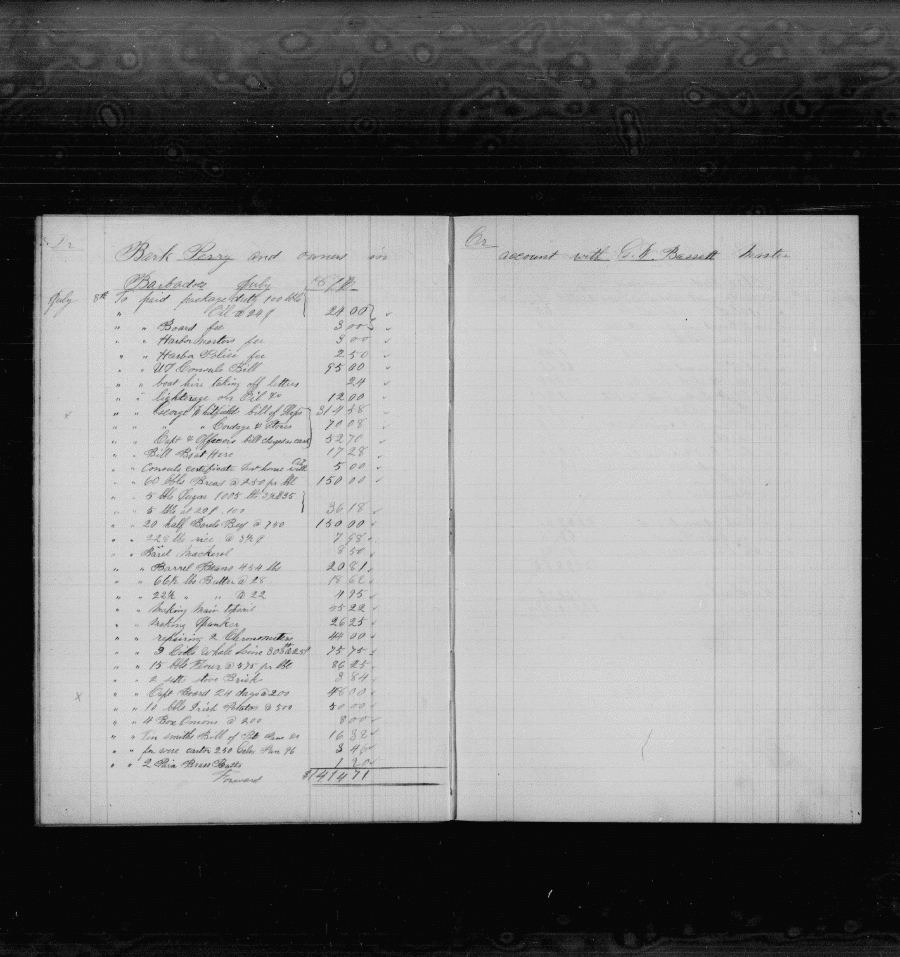 Dr
Bark Perry and owners in
Barbados July
July 8th To paid package duty 100 bbls
" Oil @ 24¢ 24 00
" " Board fee 3 00
" " Harbor Masters fee 3 00
" " Harbor Police fee 2 50
" " US Consuls Bill 95 00
" " boat hire taking off letters 24
" " lighterage on Oil &c 12 00
" " George Whitfields bill of Slops 314 58
" " " " Cordage & Stores 70 08
" " Capt & Officers bill 52 70
" " Bill Boat Hire 17 28
" " Consuls certificate 5 00
" " 60 bbls Bread @ 250 pr bbl 150 00
" " 5 bbls Sugar 1005 lbs
" " 5 bbls at 20¢ 1 00 36 18
" " 20 half Barels Beef @ 750 150 00
" " 228 lbs rice @ 3½¢ 7 98
" " Barel Mackerel 8 50
" " Barrel Beans 454 lbs 20 81
" " 66½ lbs Butter @ 28 18 62
" " 22½ " " @ 22 4 95
" " Making Main topsail 45 22
" " Making Spanker 26 25
" " repairing 2 Chronometers 44 00
" " 3 Coils Whale Line 303 lbs @ 25¢ 75 75
" " 15 bbls Flour @ 575 pr bbl 86 25
" " 2 stove Brick 3 84
" " Capt Board 24 days @ 200 48 00
" " 10 bbls Irish Potatos @ 500 50 00
" " 4 Box Onions @ 200 8 00
" " Tin smiths Bill of 16 82
" " for 3 46
" " 2 Pair Brass Butts 1 20
Forward $1414 71
Cr
account with Bassett Master